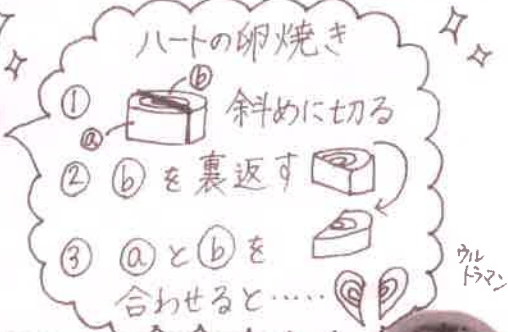 ハートの卵焼き
① ⓐ ⓑ 斜めに切る
② ⓑを裏返す
③ ⓐとⓑを
合わせると‥‥‥ ⓐ ⓑ
ウル
トラマン